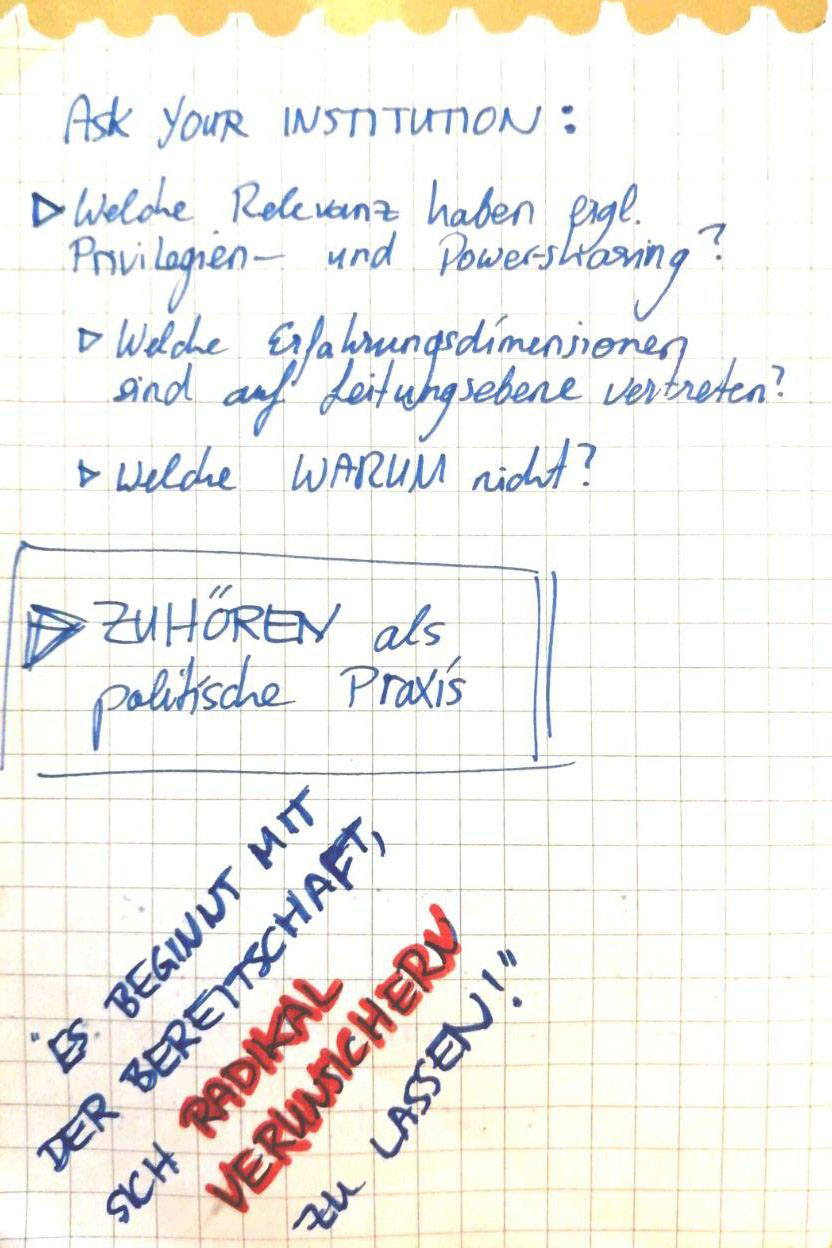 Ask YOUR INSTITUTION:
▷ Welche Relevanz haben
Privilegien- und Powersharing?
▷ Welche Erfahrungsdimensionen
sind auf Leitungsebene vertreten?
▷ Welche WARUM nicht?
▷ ZUHÖREN als
politische Praxis
"ES BEGINNT MIT
DER BEREITSCHAFT,
SICH RADIKAL
VERUNSICHERN
ZU LASSEN!"